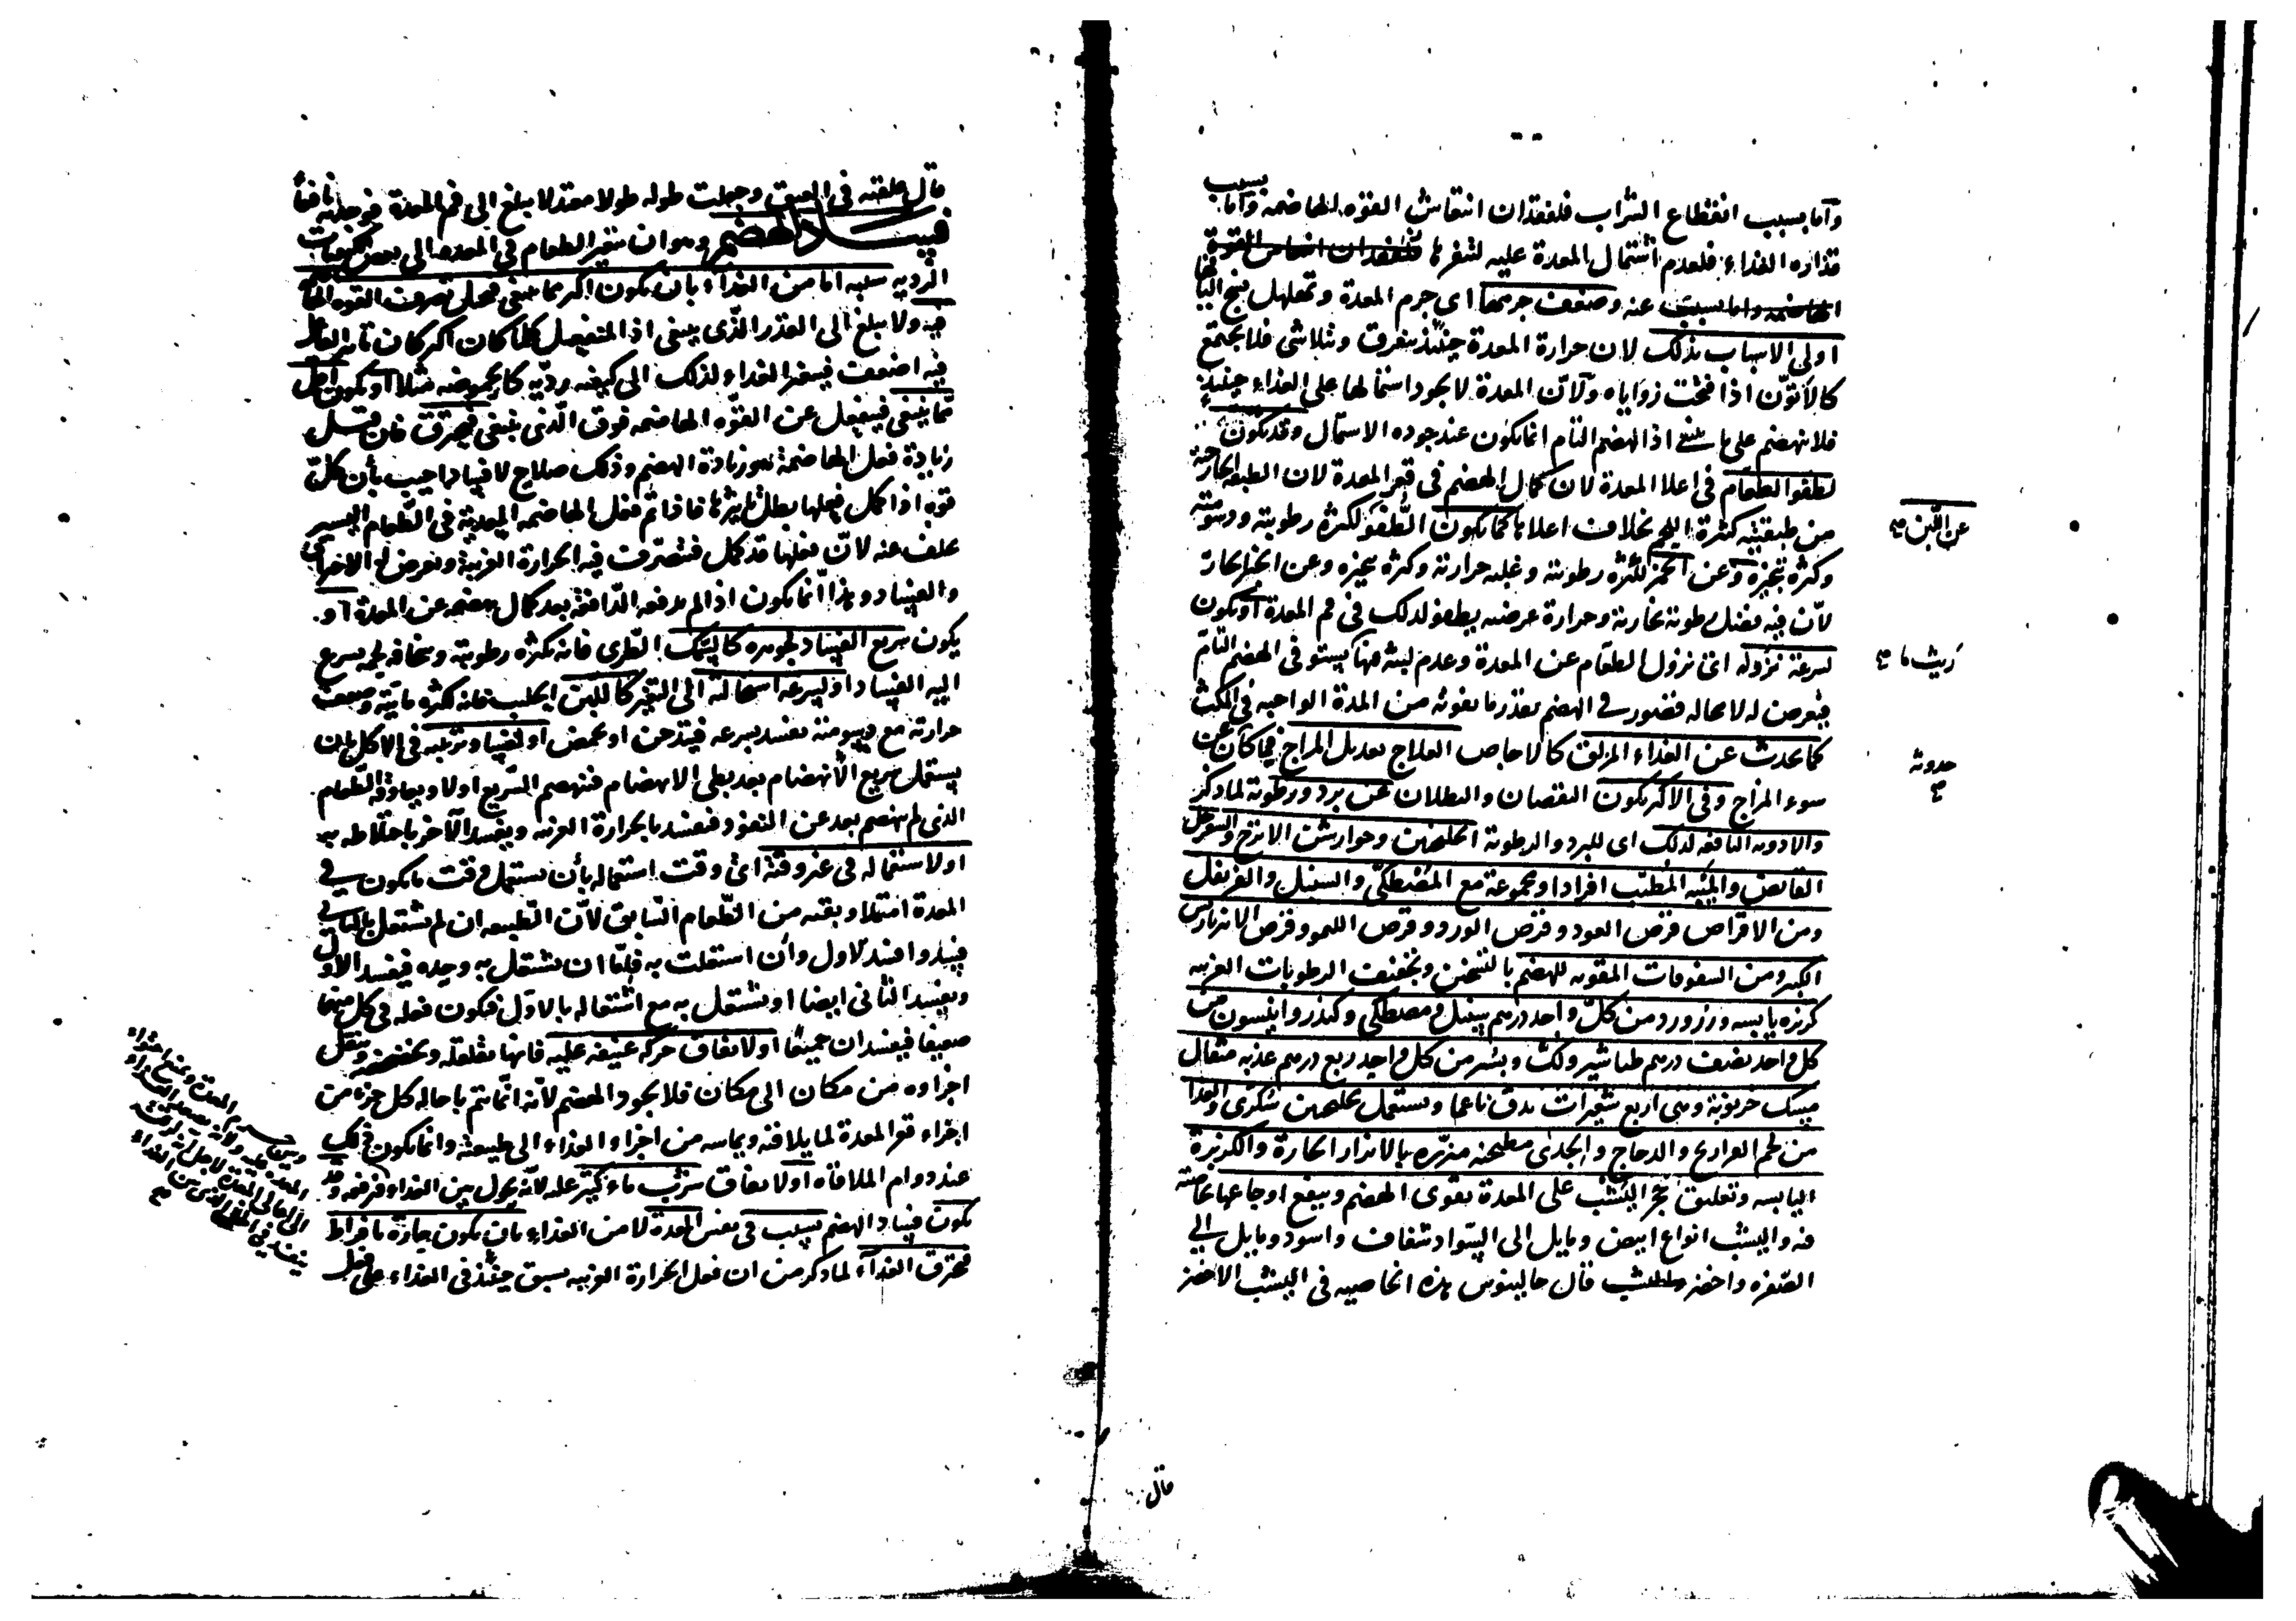 وأما بسبب انقطاع الشراب فلفقدان انتعاش القوة الهاضمة وأما بسبب
قذارة الغذاء فلعدم اشتمال المعدة عليه لتنفرها
عنه وضعف جرمها اى جرم المعدة وتهلهل نسج اليافها
اولى الاسباب بذلك لان حرارة المعدة حينئذ يتفرق وتتلاشى فلا يجتمع
كالأتون اذا فتحت زواياه ولان المعدة لا يجود اشتمالها على الغذاء حينئذ
فلا ينهضم على ما ينبغى اذ الهضم التام انما يكون عند جودة الاشتمال وقد يكون
لطفو الطعام فى اعلا المعدة لان كمال الهضم فى قعر المعدة لان الطبقة الخارجة
من طبقتيه كثيرة اللحم بخلاف اعلاها كما يكون الطفو لكثرة رطوبته ودسومته
وكثرة تبخيره وعن الخمر لكثرة رطوبته وغلبة حرارته وكثرة تبخيره وعن الخبز الحار
لأن فيه فضل رطوبة بخارية وحرارة عرضية يطفو لذلك فى فم المعدة أو يكون
لسرعة نزوله اى نزول الطعام عن المعدة وعدم لبثه فيها يستوفى الهضم التام
فيعرض له لا محالة قصور فى الهضم بقدر ما يفوته من المدة الواجبة فى المكث
كما يحدث عن الغذاء المزلق كالاجاص العلاج تعديل المزاج فيما كان عن
سوء المزاج وفى الاكثر يكون النقصان والبطلان عن برد ورطوبة لما ذكر
والادوية النافعة لذلك اى للبرد والرطوبة الجلنجبين وجوارشن الاترج والسفرجل
القابض والميبه المطيب افرادا ومجموعة مع المصطكى والسنبل والقرنفل
ومن الاقراص قرص العود وقرص الورد وقرص الليمو وقرص الانبرباريس
الكبير ومن السفوفات المقوية للهضم بالتسخين وتجفيف الرطوبات الغريبة
كزبرة يابسة وزرورد من كل واحد درهم سنبل ومصطكى وكندر وانيسون من
كل واحد نصف درهم طباشير ولك وبسر من كل واحد ربع درهم عذبة مثقال
مسك خروبة وهى اربع شعيرات يدق ناعما ويستعمل بجلنجبين سكرى والغذا
من لحم الفراريج والدجاج والجدى مطبخة مبزرة بالابزار الحارة والكزبرة
اليابسة وتعليق حجر اليشب على المعدة يقوى الهضم وينفع اوجاعها بخاصية
فيه واليشب انواع ابيض ومايل الى السواد شفاف واسود ومايل الى
الصفرة واخضر قال جالينوس هذه الخاصية فى اليشب الاخضر
عن اللبن
ريث ما
حدوثه
قال
قال علقته فى العنق وجعلت طوله طولا معتدلا يبلغ الى فم المعدة فوجدته نافعا
فساد الهضم وهو ان يتغير الطعام فى المعدة الى بعض الكيفيات
الردية سببه اما من الغذاء بأن يكون اكثر مما ينبغى
فيه ولا يبلغ الى القدر الذى ينبغى اذ المنفعل كلما كان اكثر كان تأثير الفاعل
فيه اضعف فيتغير الغذاء لذلك الى كيفية ردية كالحموضة مثلا أو يكون اقل
مما ينبغى فينفعل عن القوة الهاضمة فوق الذى ينبغى فيحترق فان قيل
زيادة فعل الهاضمة هو زيادة الهضم وذلك صلاح لا فساد اجيب بأن كل
قوة اذا كمل فعلها بطل تأثيرها فاذا تم فعل الهاضمة المعدية فى الطعام اليسير
عنه لان فعلها قد كمل فتصرفت فيه الحرارة الغريبة وتعرض له الاحتراق
والفساد وهذا انما يكون اذا لم يدفعه الدافعة بعد كمال هضمه عن المعدة أو
يكون سريع الفساد لجوهره كالسمك الطرى فانه لكثرة رطوبته وسخافة لحمه يسرع
اليه الفساد او لسرعة استحالته الى التغير كاللبن الحليب فانه لكثرة مائيته وضعف
حرارته مع دسومته يفسد بسرعة فيتدخن او يحمض او لفساد ترتيبه فى الاكل بان
يستعمل سريع الأنهضام بعد بطى الانهضام فينهضم السريع اولا ويعاوقه الطعام
الذى لم ينهضم بعد عن النفوذ فيفسد بالحرارة الغريبة ويفسد الآخر باختلاطه به
او لاستعماله فى غير وقته اى وقت استعماله بأن يستعمل وقت ما يكون فى
المعدة امتلا وبقية من الطعام السابق لأن الطبيعة ان لم تشتغل بالثانى
فسد وافسد الاول وان اشتغلت به فاما ان تشتغل به وحده فيفسد الأول
ويفسد الثانى ايضا او تشتغل به مع اشتغاله بالاول فيكون فعله فى كل منهما
ضعيفا فيفسدان جميعا او لاتفاق حركة عنيفة عليه فانها تقلقله وتخضخضه وتنقل
اجزاوه من مكان الى مكان فلا يجود الهضم لأنه انما يتم باحالة كل جزء من
اجزاء قعر المعدة لما يلاقيه ويماسه من اجزاء الغذاء الى طبيعته وانما يكون ذلك
عند دوام الملاقاه او لاتفاق شرب ماء كثير عليه لأنه يحول بين الغذاء
يكون فساد الهضم بسبب فى نفس المعدة لا من الغذاء بان يكون حارة بافراط
فتحرق الغذاء لما ذكر من ان فعل الحرارة الغريبة يسبق حينئذ فى الغذاء على فعل